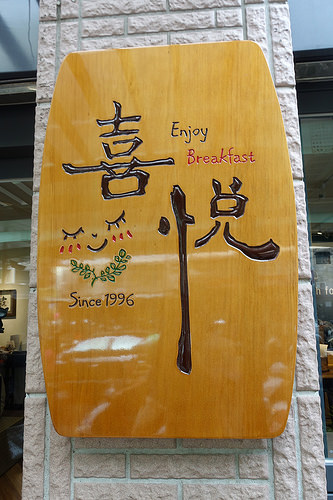 喜悅
Enjoy
Breakfast
Since 1996